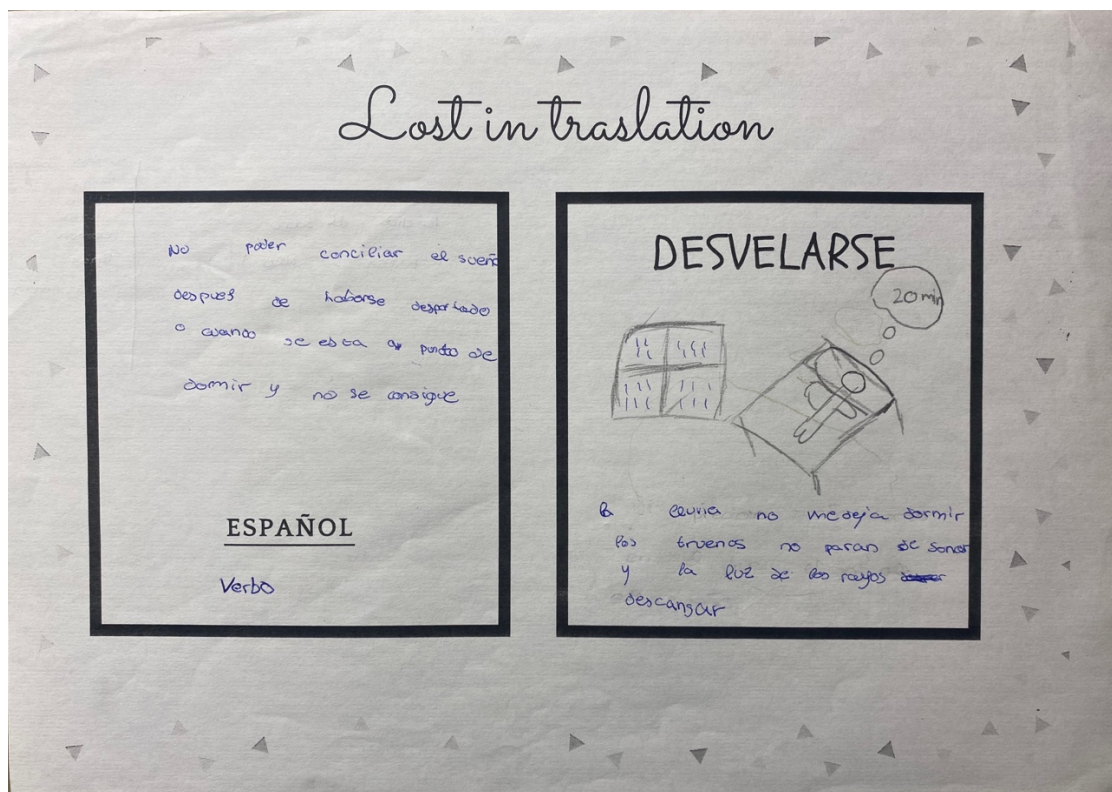 Lost in traslation
No poder conciliar el sueño
despues de haborse despertado
o cuando se esta a punto de
dormir y no se consigue
ESPAÑOL
Verbo
DESVELARSE
20 min
la lluvia no me deja dormir
los truenos no paran de sonar
y la luz de los rayos
descansar